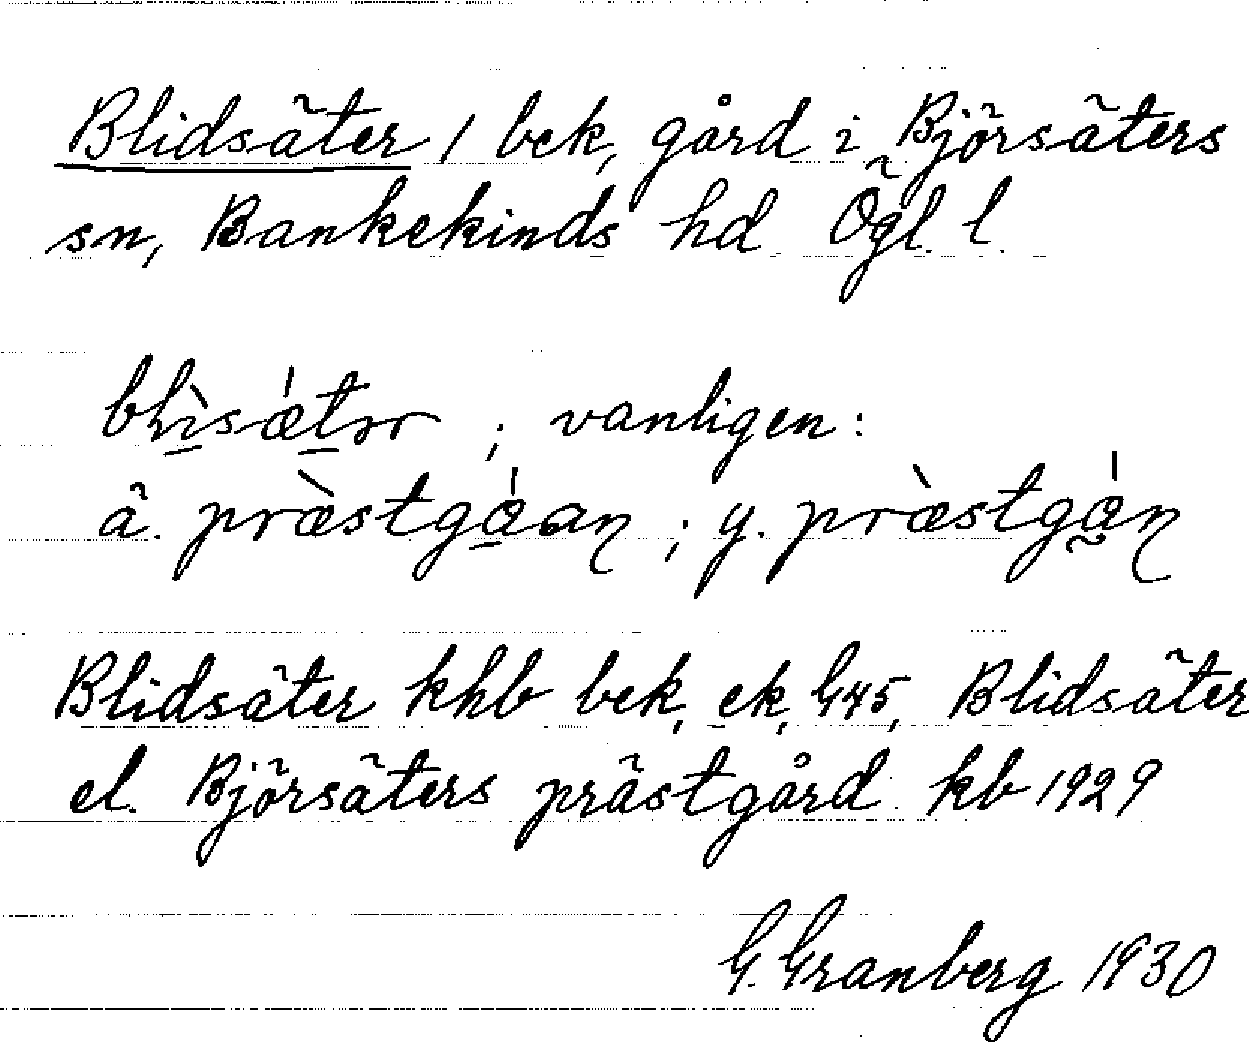 Blidsäter / bek, gård i Björsäters
sn, Bankekinds hd Ögl. l.
vanligen:
ä. y.
Blidsäter khb bek, ek, G45, Blidsäter
el. Björsäters prästgård kb 1929
G. Granberg 1930